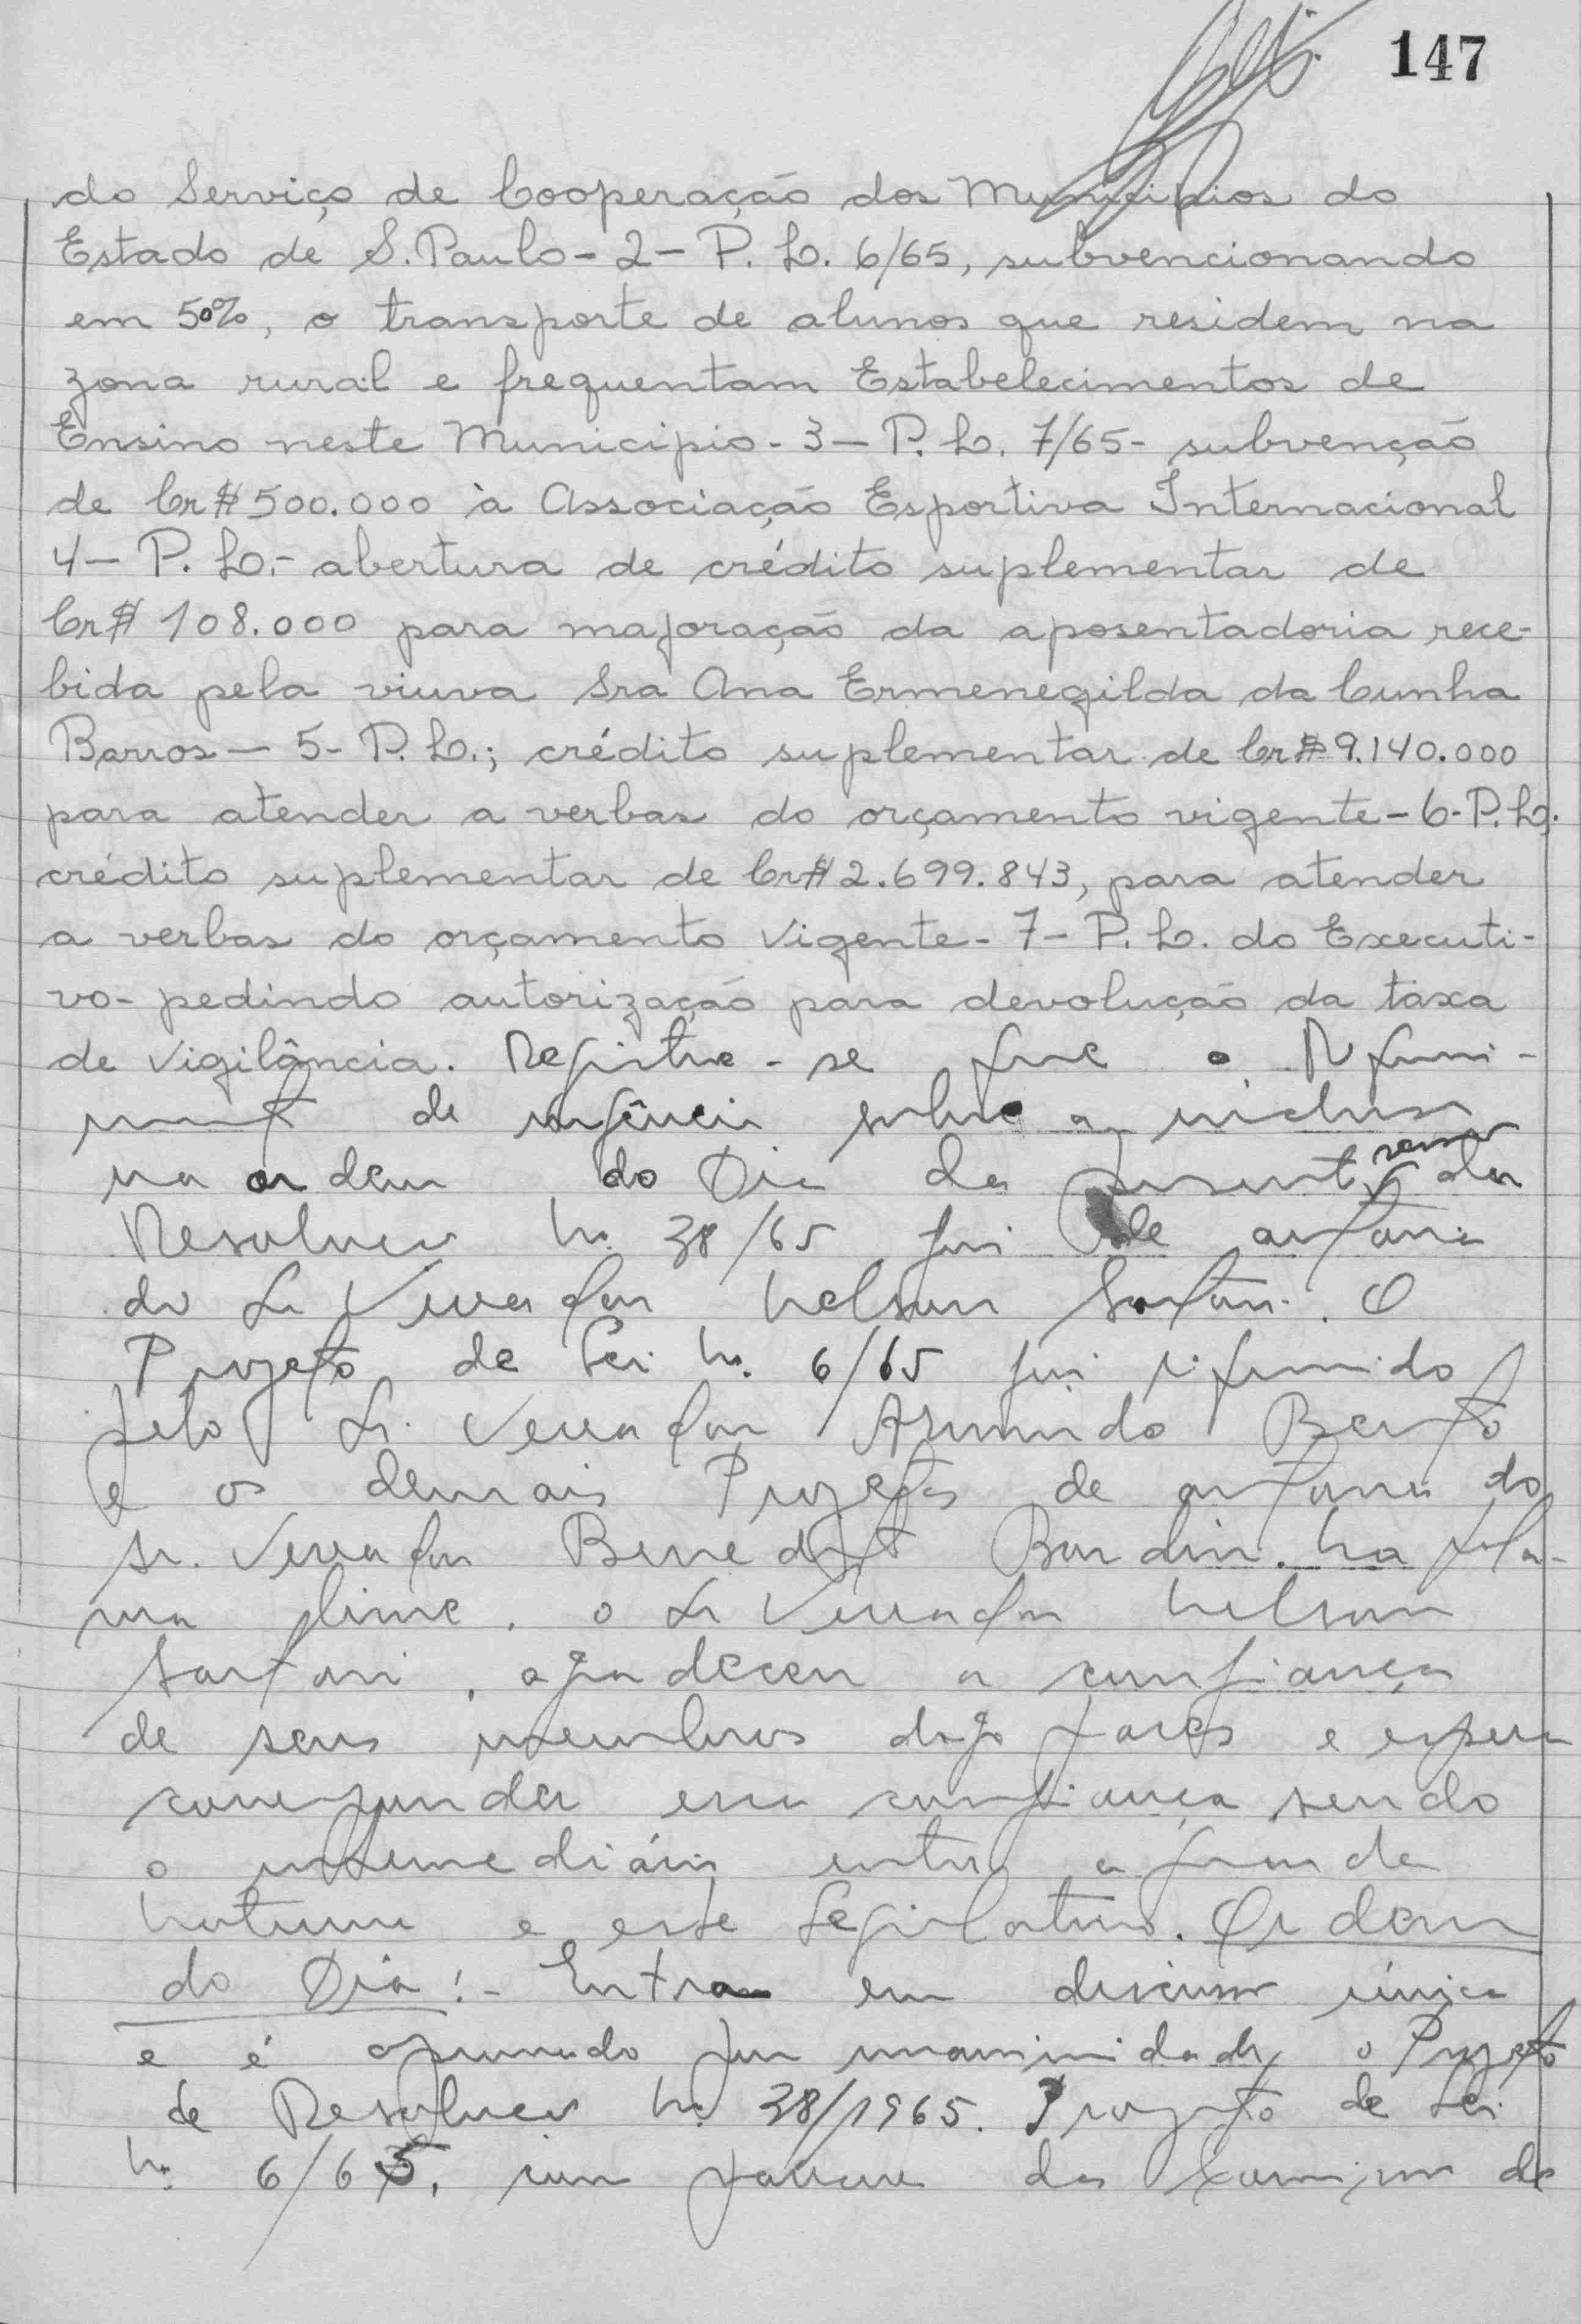 147
do Serviço de Cooperação dos Municipios do
Estado de S. Paulo - 2 - P. L. 6/65, subvencionando
em 50%, o transporte de alunos que residem na
zona rural e frequentam Estabelecimentos de
Ensino neste Municipio - 3 - P. L. 7/65 - subvenção
de Cr$ 500.000 à Associação Esportiva Internacional
4 - P. L. - abertura de crédito suplementar de
Cr$ 108.000 para majoração da aposentadoria rece-
bida pela viuva Sra Ana Ermenegilda da Cunha
Barros - 5 - P. L.; crédito suplementar de Cr$ 9.140.000
para atender a verbas do orçamento vigente - 6 - P. L;
crédito suplementar de Cr$ 2.699.843, para atender
a verbas do orçamento vigente - 7 - P. L. do Executi-
vo - pedindo autorização para devolução da taxa
de vigilância. Registre-se que o Requeri-
mento de urgência sobre a inclusão
na ordem do Dia da presente sessão da
Resolução nº 38/65 foi de autoria
do Sr Vereador Nelson Sartori. O
Projeto de Lei nº 6/65 foi requerido
pelo Sr. Vereador Armando Bento
e os demais Projetos de autoria do
Sr. Vereador Benedito Bardin. Na pala-
vra livre, o Sr Vereador Nelson
Sartori, agradeceu a confiança
de seus membros pares e espera
corresponder essa confiança sendo
o intermediário entre a guarda
noturna e este Legislativo. Ordem
do Dia: - Entra em discussão única
e é aprovado por unanimidade o Projeto
de Resolução nº 38/1965. Projeto de Lei
nº 6/65, com parecer da Comissão de